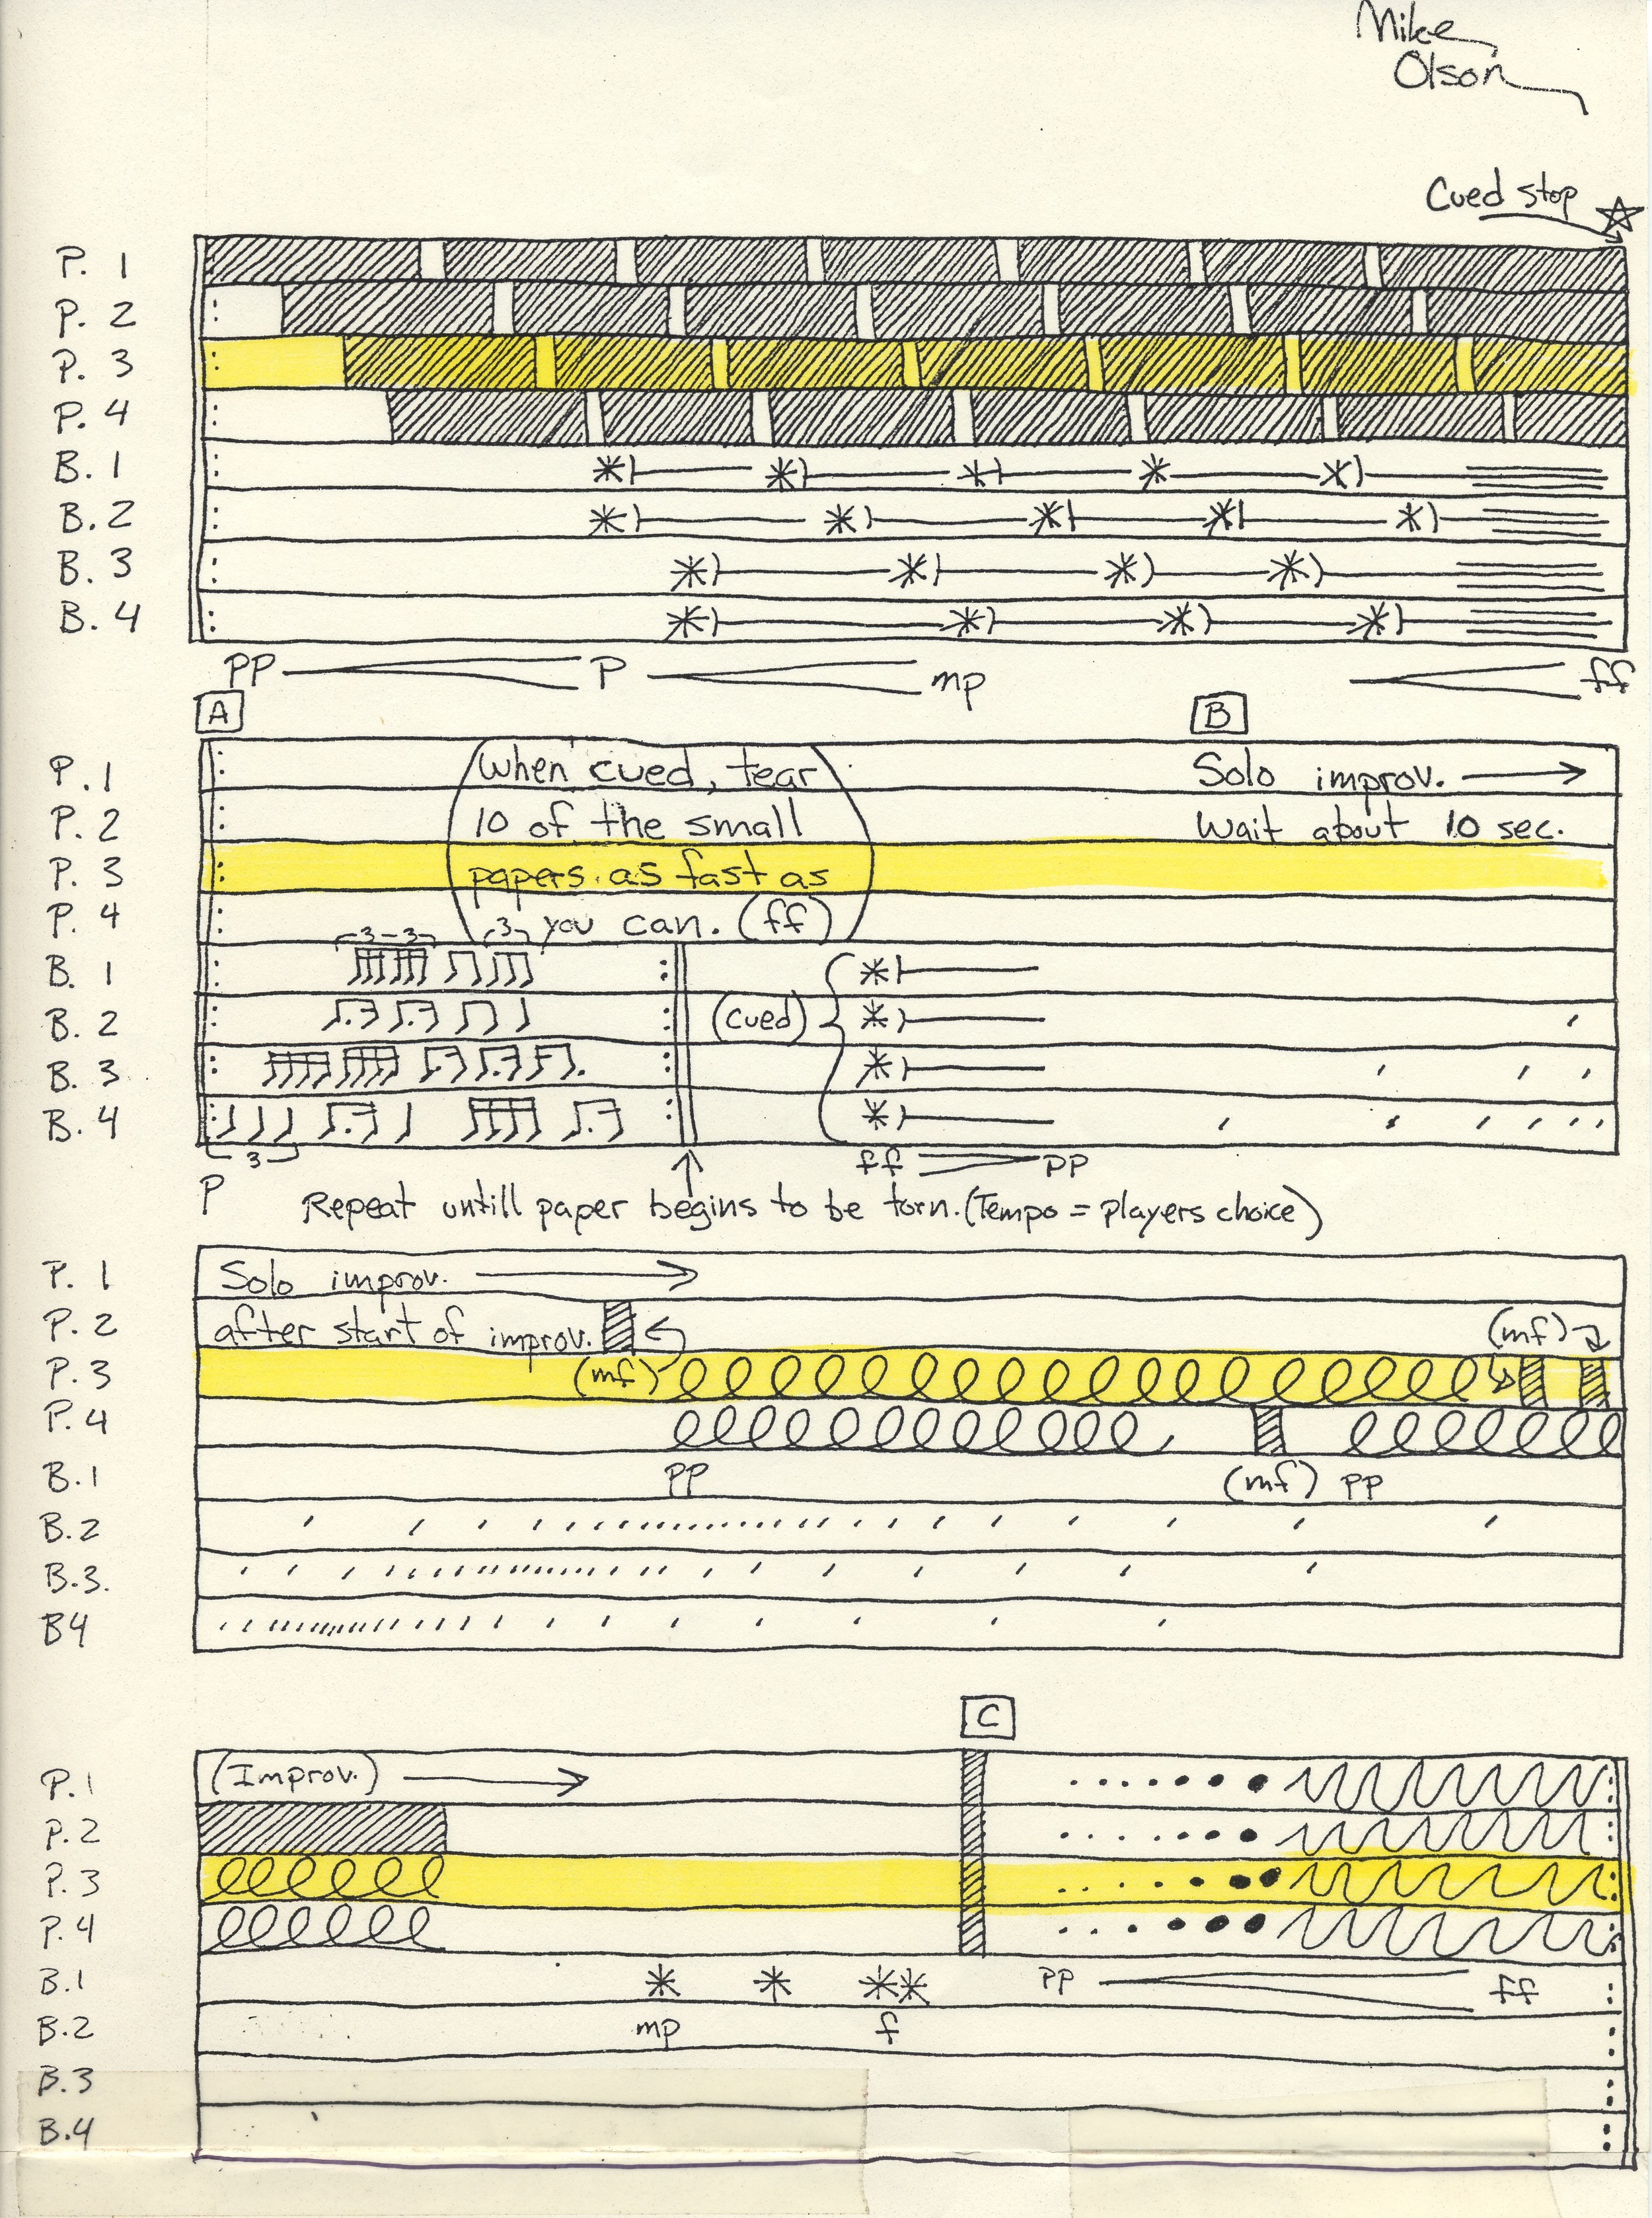 Mike
Olson
Cued stop
P. 1
P. 2
P. 3
P. 4
B. 1
B. 2
B. 3
B. 4
PP P mp ff
A B
P. 1 When cued, tear Solo improv.
P. 2 10 of the small Wait about 10 sec.
P. 3 papers as fast as
P. 4 you can. (ff)
3 3 3
B. 1
B. 2 (cued)
B. 3
B. 4
3 ff PP
P Repeat untill paper begins to be torn. (Tempo = players choice)
P. 1 Solo improv.
P. 2 after start of improv. (mf)
P. 3 (mf)
P. 4
B. 1 PP (mf) PP
B. 2
B. 3.
B4
C
P. 1 (Improv.)
P. 2
P. 3
P. 4
B. 1 PP ff
B. 2 mp f
B. 3
B. 4